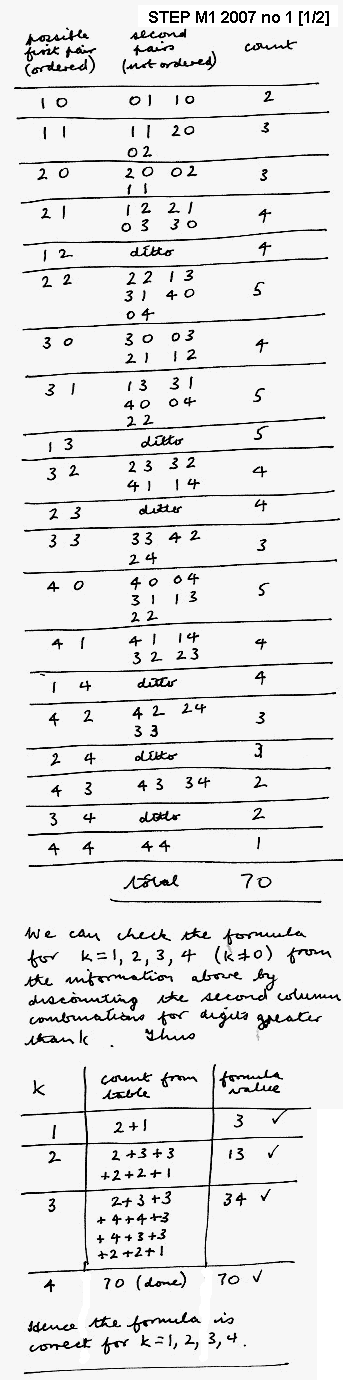 STEP M1 2007 no 1 [1/2]
possible first pair (ordered) second pairs (not ordered) count
1 0 01 10 2
1 1 11 20 3
02
2 0 20 02 3
11
2 1 12 21 4
03 30
1 2 ditto 4
2 2 22 13 5
31 40
04
3 0 30 03 4
21 12
3 1 13 31 5
40 04
22
1 3 ditto 5
3 2 23 32 4
41 14
2 3 ditto 4
3 3 33 42 3
24
4 0 40 04 5
31 13
22
4 1 41 14 4
32 23
1 4 ditto 4
4 2 42 24 3
33
2 4 ditto 3
4 3 43 34 2
3 4 ditto 2
4 4 44 1
total 70
We can check the formula
for k=1, 2, 3, 4 (k≠0) from
the information above by
discounting the second column
combinations for digits greater
than k. Thus
k count from table formula value
1 2+1 3 ✓
2 2+3+3 13 ✓
+2+2+1
3 2+3+3 34 ✓
+4+4+3
+4+3+3
+2+2+1
4 70 (done) 70 ✓
Hence the formula is
correct for k=1, 2, 3, 4.